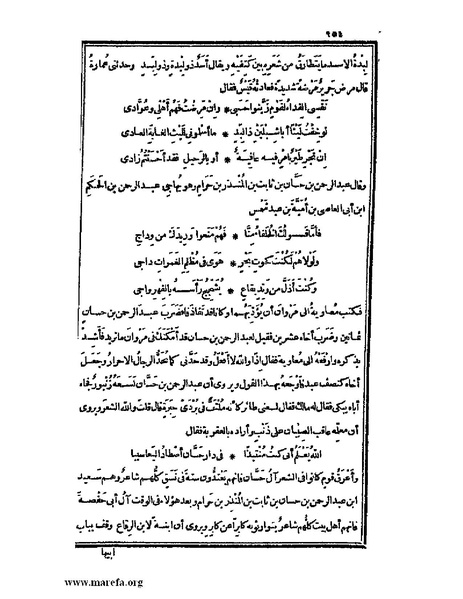 ٢٥٤
لبدة الاسد ما يتطارق من شعره بين كتفيه ويقال أسد ذو لبدة وذو لبد وحدثني عمارة
قال مرض جرير مرضة شديدة فعادته قيس فقال
نفسي الفداء لقوم زينوا حسبي * وان مرضت فهم أهلي وعوادي
لو خفت ليثا أبا شبلين ذا لبد * ما أسلموني لليث الغابة العادي
ان تجر طير بأمر فيه عافية * أو بالرحيل فقد أحسنتم زادي
وقال عبد الرحمن بن حسان بن ثابت بن المنذر بن حرام وهو يهاجي عبد الرحمن بن الحكم
ابن أبي العاصي بن أمية بن عبد شمس
فأما قولك الخلفاء منا * فهم منعوا وريدك من وداج
ولولاهم لكنت كحوت بحر * هوى في مظلم الغمرات داجي
وكنت أذل من وتد بقاع * يشجج رأسه بالفهر واجي
فكتب معاوية الى مروان أن يؤدبهما وكانا قد تقاذفا فضرب عبد الرحمن بن حسان
ثمانين وضرب أخاه عشرين فقيل لعبد الرحمن بن حسان قد أمكنك في مروان ما تريد فأشد
بذكره وارفعه الى معاوية فقال اذا والله لا أفعل وقد حدني كما تحد الرجال الاحرار وجعل
أخاه كنصف عبد فأوجعه بهذا القول ويروى أن عبد الرحمن بن حسان لسعه زنبور فجاء
أباه يبكي فقال له مالك فقال لسعني طائر كأنه ملتف في بردي حبرة قال قلت والله الشعر ويروى
أن معلمه عاقب الصبيان على ذنب وأراده بالعقوبة فقال
الله يعلم أني كنت منتبذا * في دار حسان أصطاد اليعاسيبا
وأعرق قوم كانوا في الشعر آل حسان فانهم يعتدون ستة في نسق كلهم شاعر وهم سعيد
ابن عبد الرحمن بن حسان بن ثابت بن المنذر بن حرام وبعد هؤلاء في الوقت آل أبي حفصة
فانهم أهل بيت كلهم شاعر يتوارثونه كابرا عن كابر ويروى أن ابنة لابن الرقاع وقف بباب
أبيها
www.marefa.org